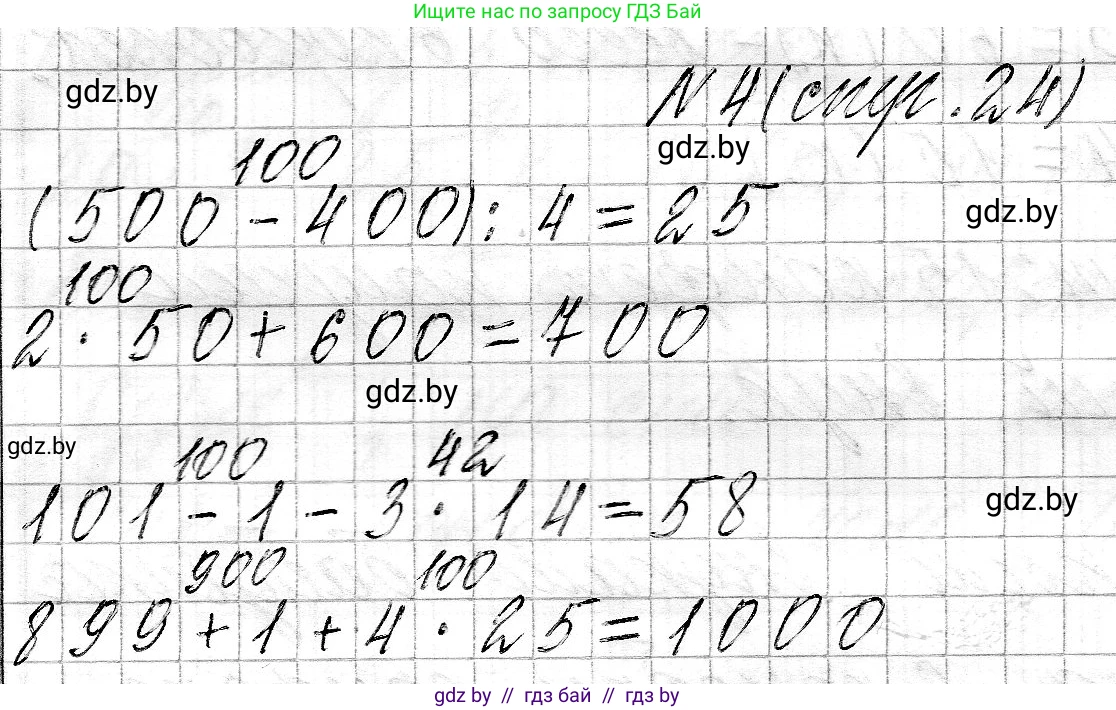 Ищите нас по запросу ГДЗ Бай
gdz.by
N 4 (стр. 24)
gdz.by
100
(500 - 400) : 4 = 25
gdz.by
100
2 · 50 + 600 = 700
gdz.by
gdz.by
100 42
101 - 1 - 3 · 14 = 58
gdz.by
900 100
899 + 1 + 4 · 25 = 1000
gdz.by // гдз бай // гдз by